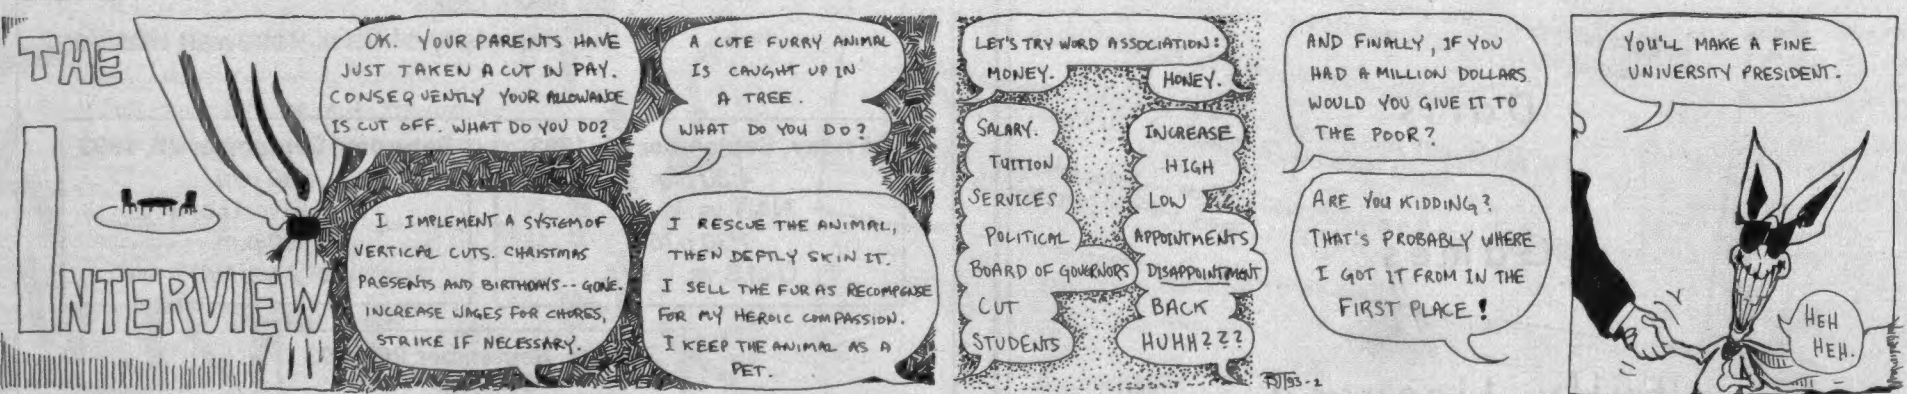 THE
INTERVIEW
OK. YOUR PARENTS HAVE
JUST TAKEN A CUT IN PAY.
CONSEQUENTLY YOUR ALLOWANCE
IS CUT OFF. WHAT DO YOU DO?
I IMPLEMENT A SYSTEM OF
VERTICAL CUTS. CHRISTMAS
PRESENTS AND BIRTHDAYS -- GONE.
INCREASE WAGES FOR CHORES,
STRIKE IF NECESSARY.
A CUTE FURRY ANIMAL
IS CAUGHT UP IN
A TREE.
WHAT DO YOU DO?
I RESCUE THE ANIMAL,
THEN DEFTLY SKIN IT.
I SELL THE FUR AS RECOMPENSE
FOR MY HEROIC COMPASSION.
I KEEP THE ANIMAL AS A
PET.
LET'S TRY WORD ASSOCIATION:
MONEY.
HONEY.
SALARY.
INCREASE
TUITION
HIGH
SERVICES
LOW
POLITICAL
APPOINTMENTS
BOARD OF GOVERNORS
DISAPPOINTMENT
CUT
BACK
STUDENTS
HUHH???
AND FINALLY, IF YOU
HAD A MILLION DOLLARS
WOULD YOU GIVE IT TO
THE POOR?
ARE YOU KIDDING?
THAT'S PROBABLY WHERE
I GOT IT FROM IN THE
FIRST PLACE!
YOU'LL MAKE A FINE
UNIVERSITY PRESIDENT.
HEH
HEH.